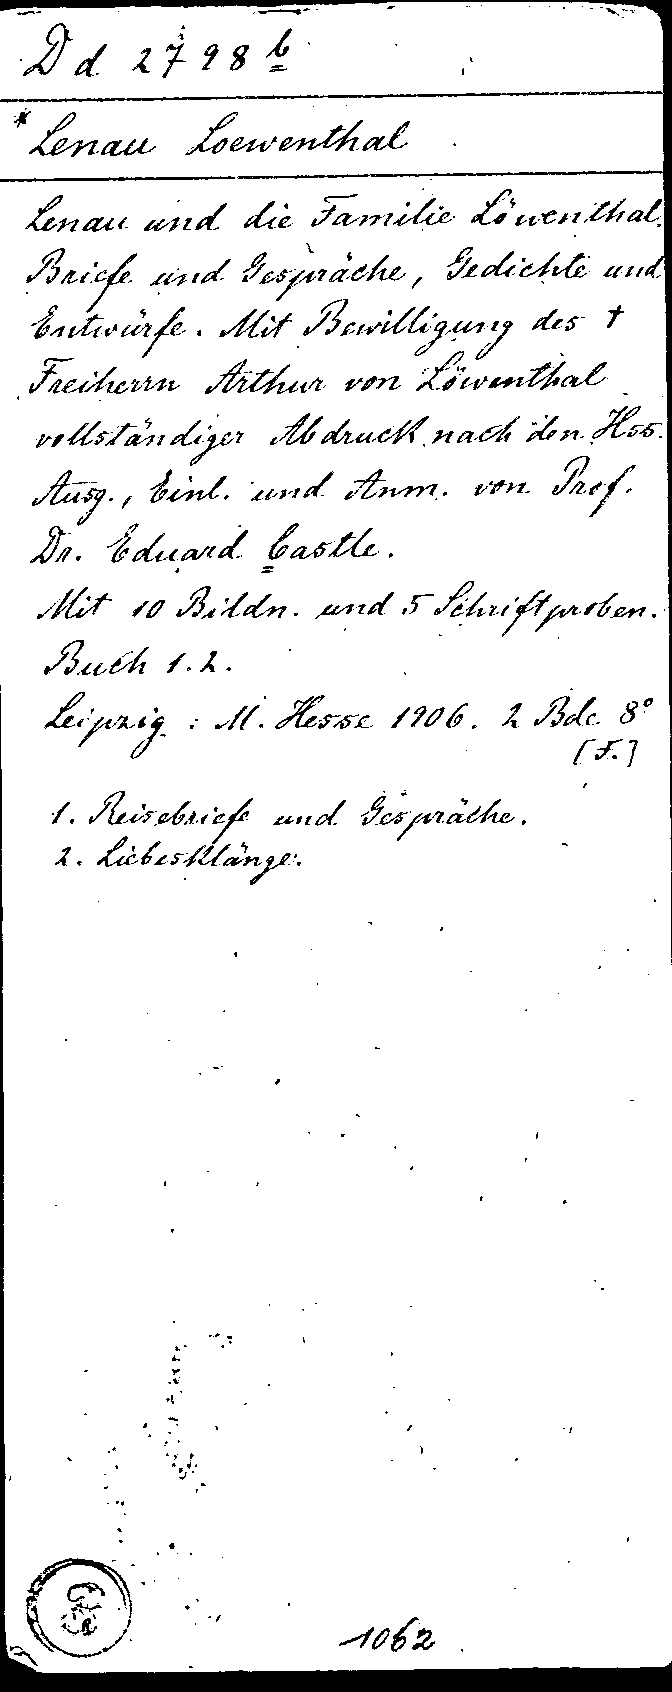 Dd 2798 b
* Lenau Loewenthal
Lenau und die Familie Löwenthal.
Briefe und Gespräche, Gedichte und
Entwürfe. Mit Bewilligung des †
Freiherrn Arthur von Löwenthal
vollständiger Abdruck nach den Hss.
Ausg., Einl. und Anm. von Prof.
Dr. Eduard Castle.
Mit 10 Bildn. und 5 Schriftproben.
Buch 1.2.
Leipzig : M. Hesse 1906. 2 Bde 8°
[F.]
1. Reisebriefe und Gespräche.
2. Liebesklänge.
1062